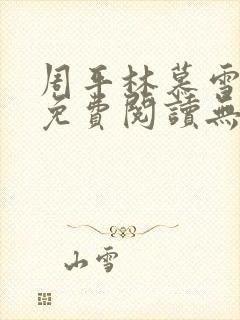 周平林慕雪
免費閱讀無
山雪